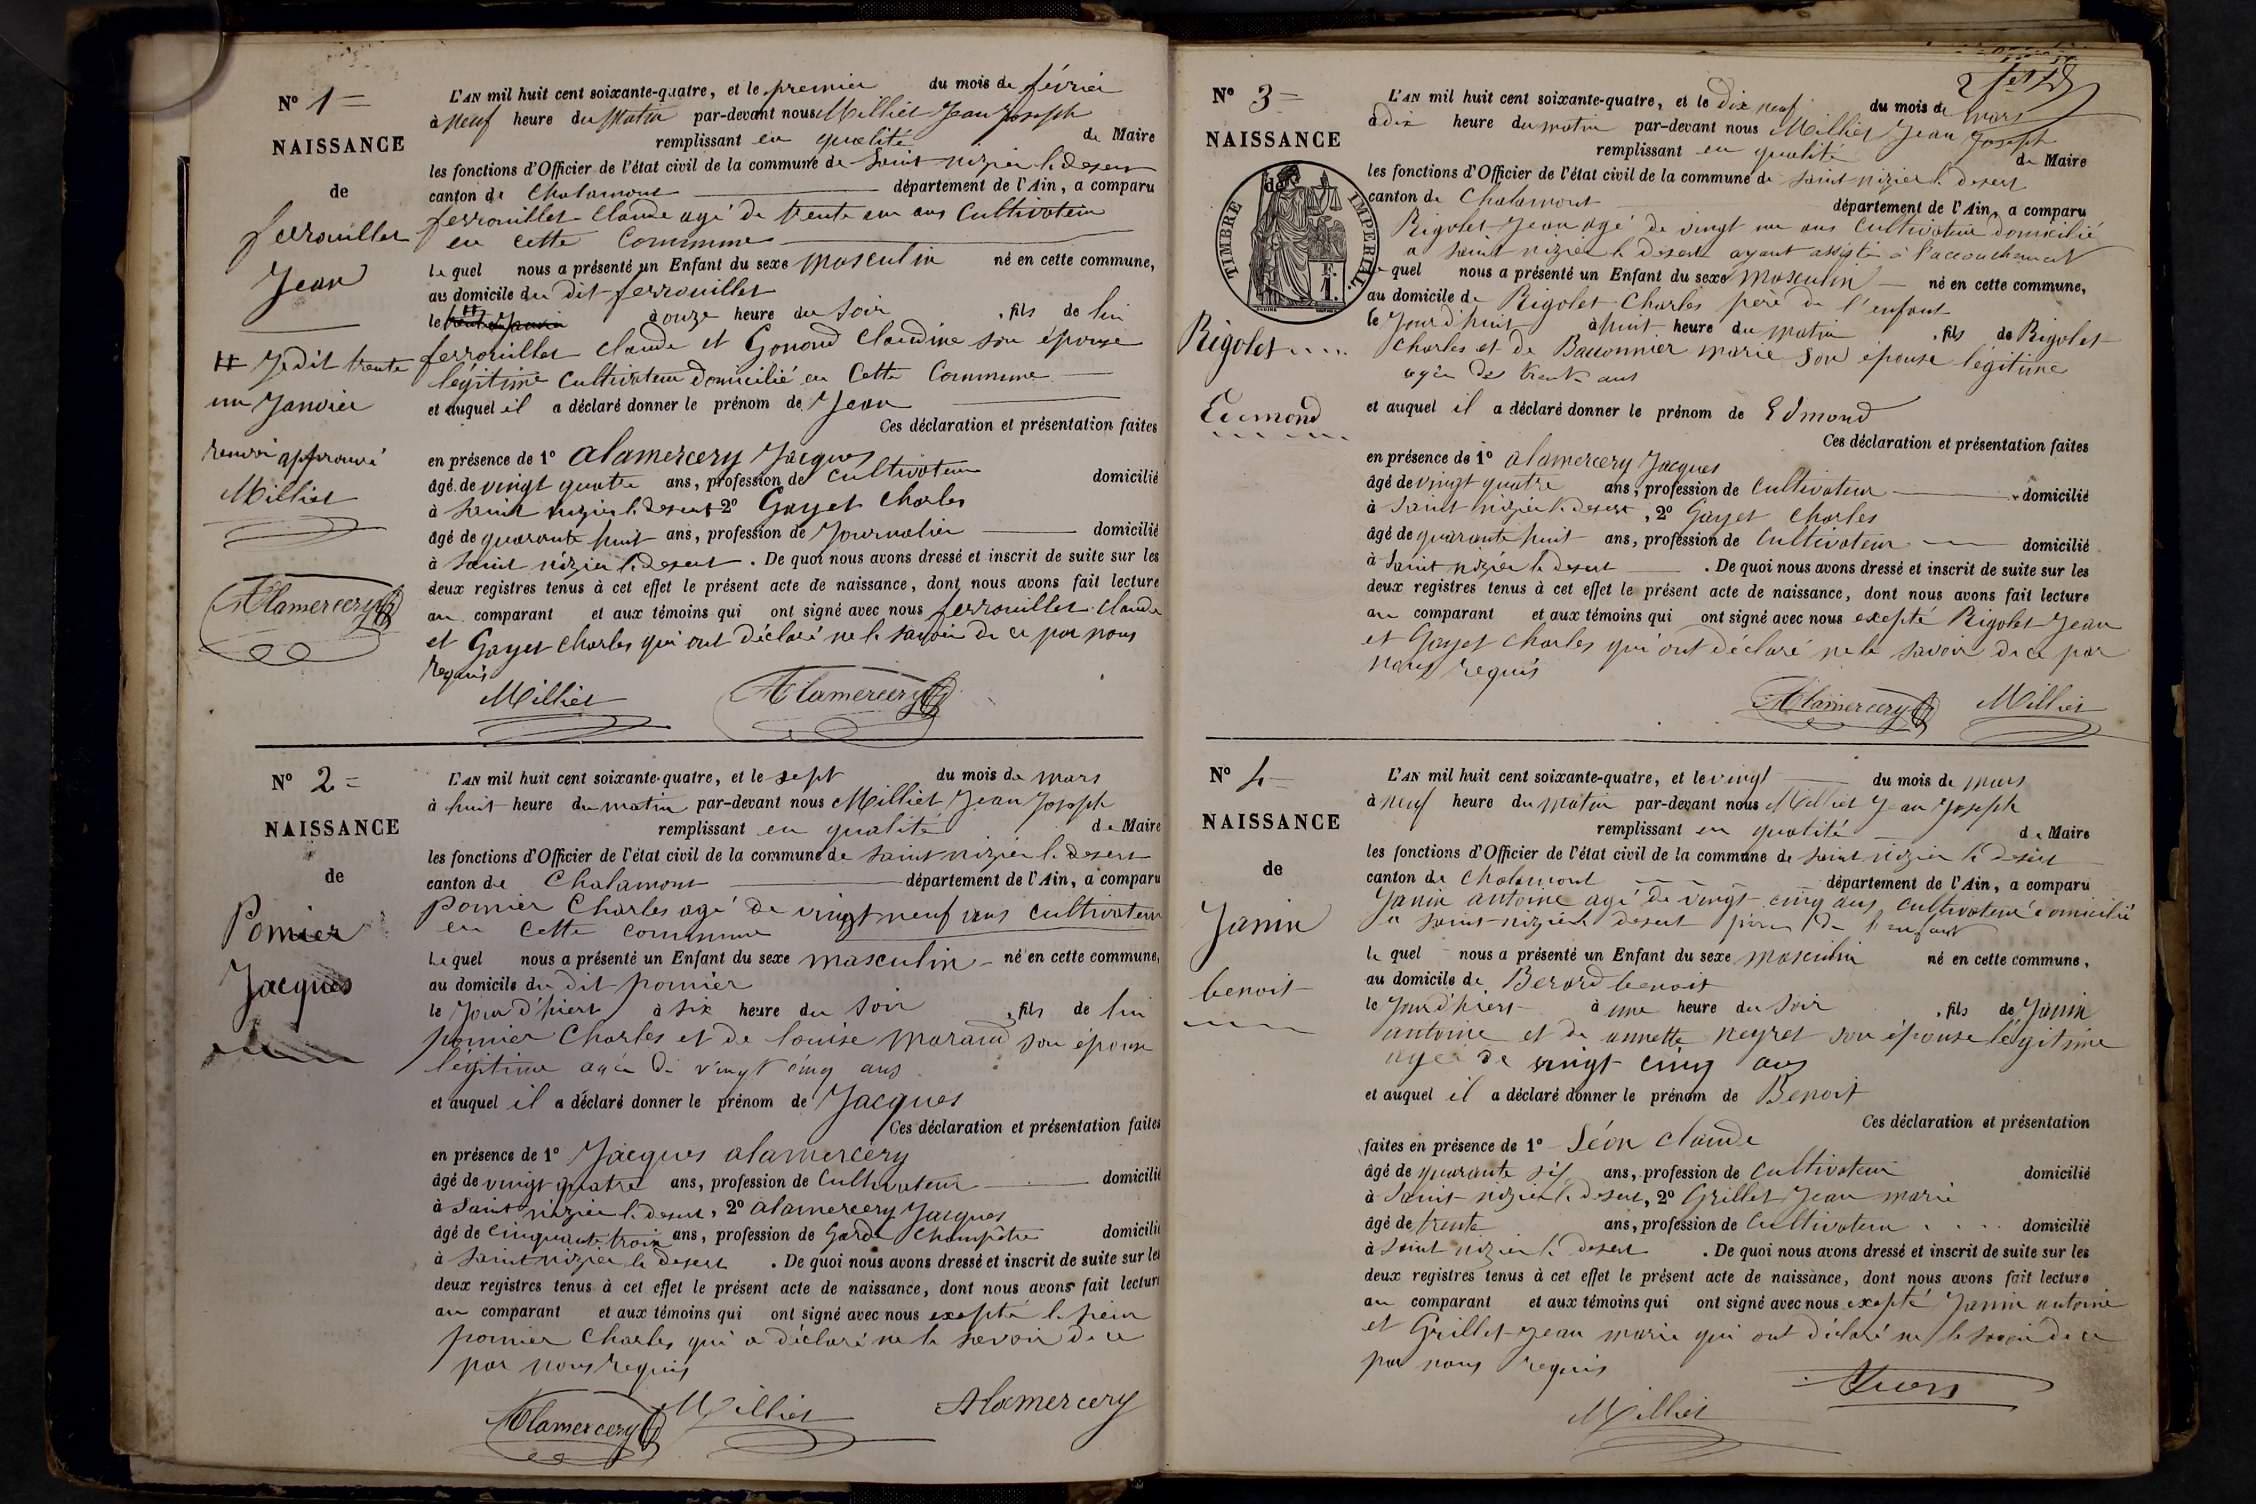 N° 1=
NAISSANCE
de
ferrouillet
Jean
++ Jedit trente
un Janvier
renvoi approuvé
Milliet
Alamercery
L'AN mil huit cent soixante-quatre, et le premier du mois de février
à neuf heure du Matin par-devant nous Milliet Jean Joseph
remplissant en qualité de Maire
les fonctions d'Officier de l'état civil de la commune de Saint nizier le desert
canton de Chalamont département de l'Ain, a comparu
ferrouillet Claude agé de trente un ans Cultivateur
en cette Commune
le quel nous a présenté un Enfant du sexe masculin né en cette commune,
au domicile du dit ferrouillet
le ++ à onze heure du Soir , fils de lui
ferrouillet claude et Gonond Claudine son épouse
légitime Cultivateur domicilié en Cette Commune
et auquel il a déclaré donner le prénom de Jean
Ces déclaration et présentation faites
en présence de 1° alamercery Jacques
âgé de vingt quatre ans, profession de Cultivateur domicilié
à Saint nizier le desert 2° Gayet Charles
âgé de quarante huit ans, profession de Journalier domicilié
à Saint nizier le desert . De quoi nous avons dressé et inscrit de suite sur les
deux registres tenus à cet effet le présent acte de naissance, dont nous avons fait lecture
au comparant et aux témoins qui ont signé avec nous ferrouillet claude
et Gayet Charles qui ont déclaré ne le savoir de ce par nous
requis
Milliet Alamercery
N° 2=
NAISSANCE
de
Pomier
Jacques
L'AN mil huit cent soixante-quatre, et le sept du mois de mars
à huit heure du matin par-devant nous Milliet Jean Joseph
remplissant en qualité de Maire
les fonctions d'Officier de l'état civil de la commune de Saint nizier le desert
canton de Chalamont département de l'Ain, a comparu
pomier Charles agé de vingt neuf ans cultivateur
en cette commune
le quel nous a présenté un Enfant du sexe masculin né en cette commune,
au domicile du dit pomier
le Jour d'hiert à six heure du soir , fils de lui
pomier Charles et de louise morand son épouse
légitime agée de vingt cinq ans
et auquel il a déclaré donner le prénom de Jacques
Ces déclaration et présentation faites
en présence de 1° Jacques alamercery
âgé de vingt quatre ans, profession de Cultivateur domicilié
à Saint nizier le desert, 2° alamercery Jacques
âgé de cinquante trois ans, profession de Garde Champêtre domicilié
à Saint nizier le desert . De quoi nous avons dressé et inscrit de suite sur les
deux registres tenus à cet effet le présent acte de naissance, dont nous avons fait lecture
au comparant et aux témoins qui ont signé avec nous exepté le
pomier Charles qui a déclaré ne le savoir de ce
par nous requis
Alamercery Milliet Alamercery
N° 3=
NAISSANCE
de
TIMBRE IMPERIAL
Rigolet
Edmond
L'AN mil huit cent soixante-quatre, et le Dix neuf du mois de mars
à dix heure du matin par-devant nous Milliet Jean Joseph
remplissant en qualité de Maire
les fonctions d'Officier de l'état civil de la commune de Saint nizier le desert
canton de Chalamont département de l'Ain, a comparu
Rigolet Jean agé de vingt un ans Cultivateur domicilié
a Saint nizier le désert ayant assisté à l'accouchement
le quel nous a présenté un Enfant du sexe masculin né en cette commune,
au domicile de Rigolet Charles père de l'enfant
le Jour d'huit à huit heure du matin , fils de Rigolet
Charles et de Baconnier marie son épouse légitime
agée de trente ans
et auquel il a déclaré donner le prénom de Edmond
Ces déclaration et présentation faites
en présence de 1° alamercery Jacques
âgé de vingt quatre ans, profession de Cultivateur domicilié
à Saint nizier le desert, 2° Gayet Charles
âgé de quarante huit ans, profession de Cultivateur domicilié
à Saint nizier le desert . De quoi nous avons dressé et inscrit de suite sur les
deux registres tenus à cet effet le présent acte de naissance, dont nous avons fait lecture
au comparant et aux témoins qui ont signé avec nous exepté Rigolet Jean
et Gayet Charles qui ont déclaré ne le savoir de ce par
nous requis
Alamercery Milliet
N° 4=
NAISSANCE
de
Janin
benoit
L'AN mil huit cent soixante-quatre, et le vingt du mois de mars
à neuf heure du matin par-devant nous Milliet Jean Joseph
remplissant en qualité de Maire
les fonctions d'Officier de l'état civil de la commune de Saint nizier le desert
canton de Chalamont département de l'Ain, a comparu
Janin antoine agé de vingt cinq ans cultivateur domicilié
a Saint nizier le desert père de l'enfant
le quel nous a présenté un Enfant du sexe masculin né en cette commune,
au domicile de Berard benoit
le Jour d'hiert à une heure du soir , fils de Janin
antoine et de annette neyret son épouse légitime
agée de vingt cinq ans
et auquel il a déclaré donner le prénom de Benoit
Ces déclaration et présentation
faites en présence de 1° Claude
âgé de quarante six ans, profession de Cultivateur domicilié
à Saint nizier le desert, 2° Grillet Jean marie
âgé de trente ans, profession de Cultivateur domicilié
à Saint nizier le desert . De quoi nous avons dressé et inscrit de suite sur les
deux registres tenus à cet effet le présent acte de naissance, dont nous avons fait lecture
au comparant et aux témoins qui ont signé avec nous exepté Janin antoine
et Grillet Jean marie qui ont déclaré ne le savoir de ce
par nous requis
Milliet